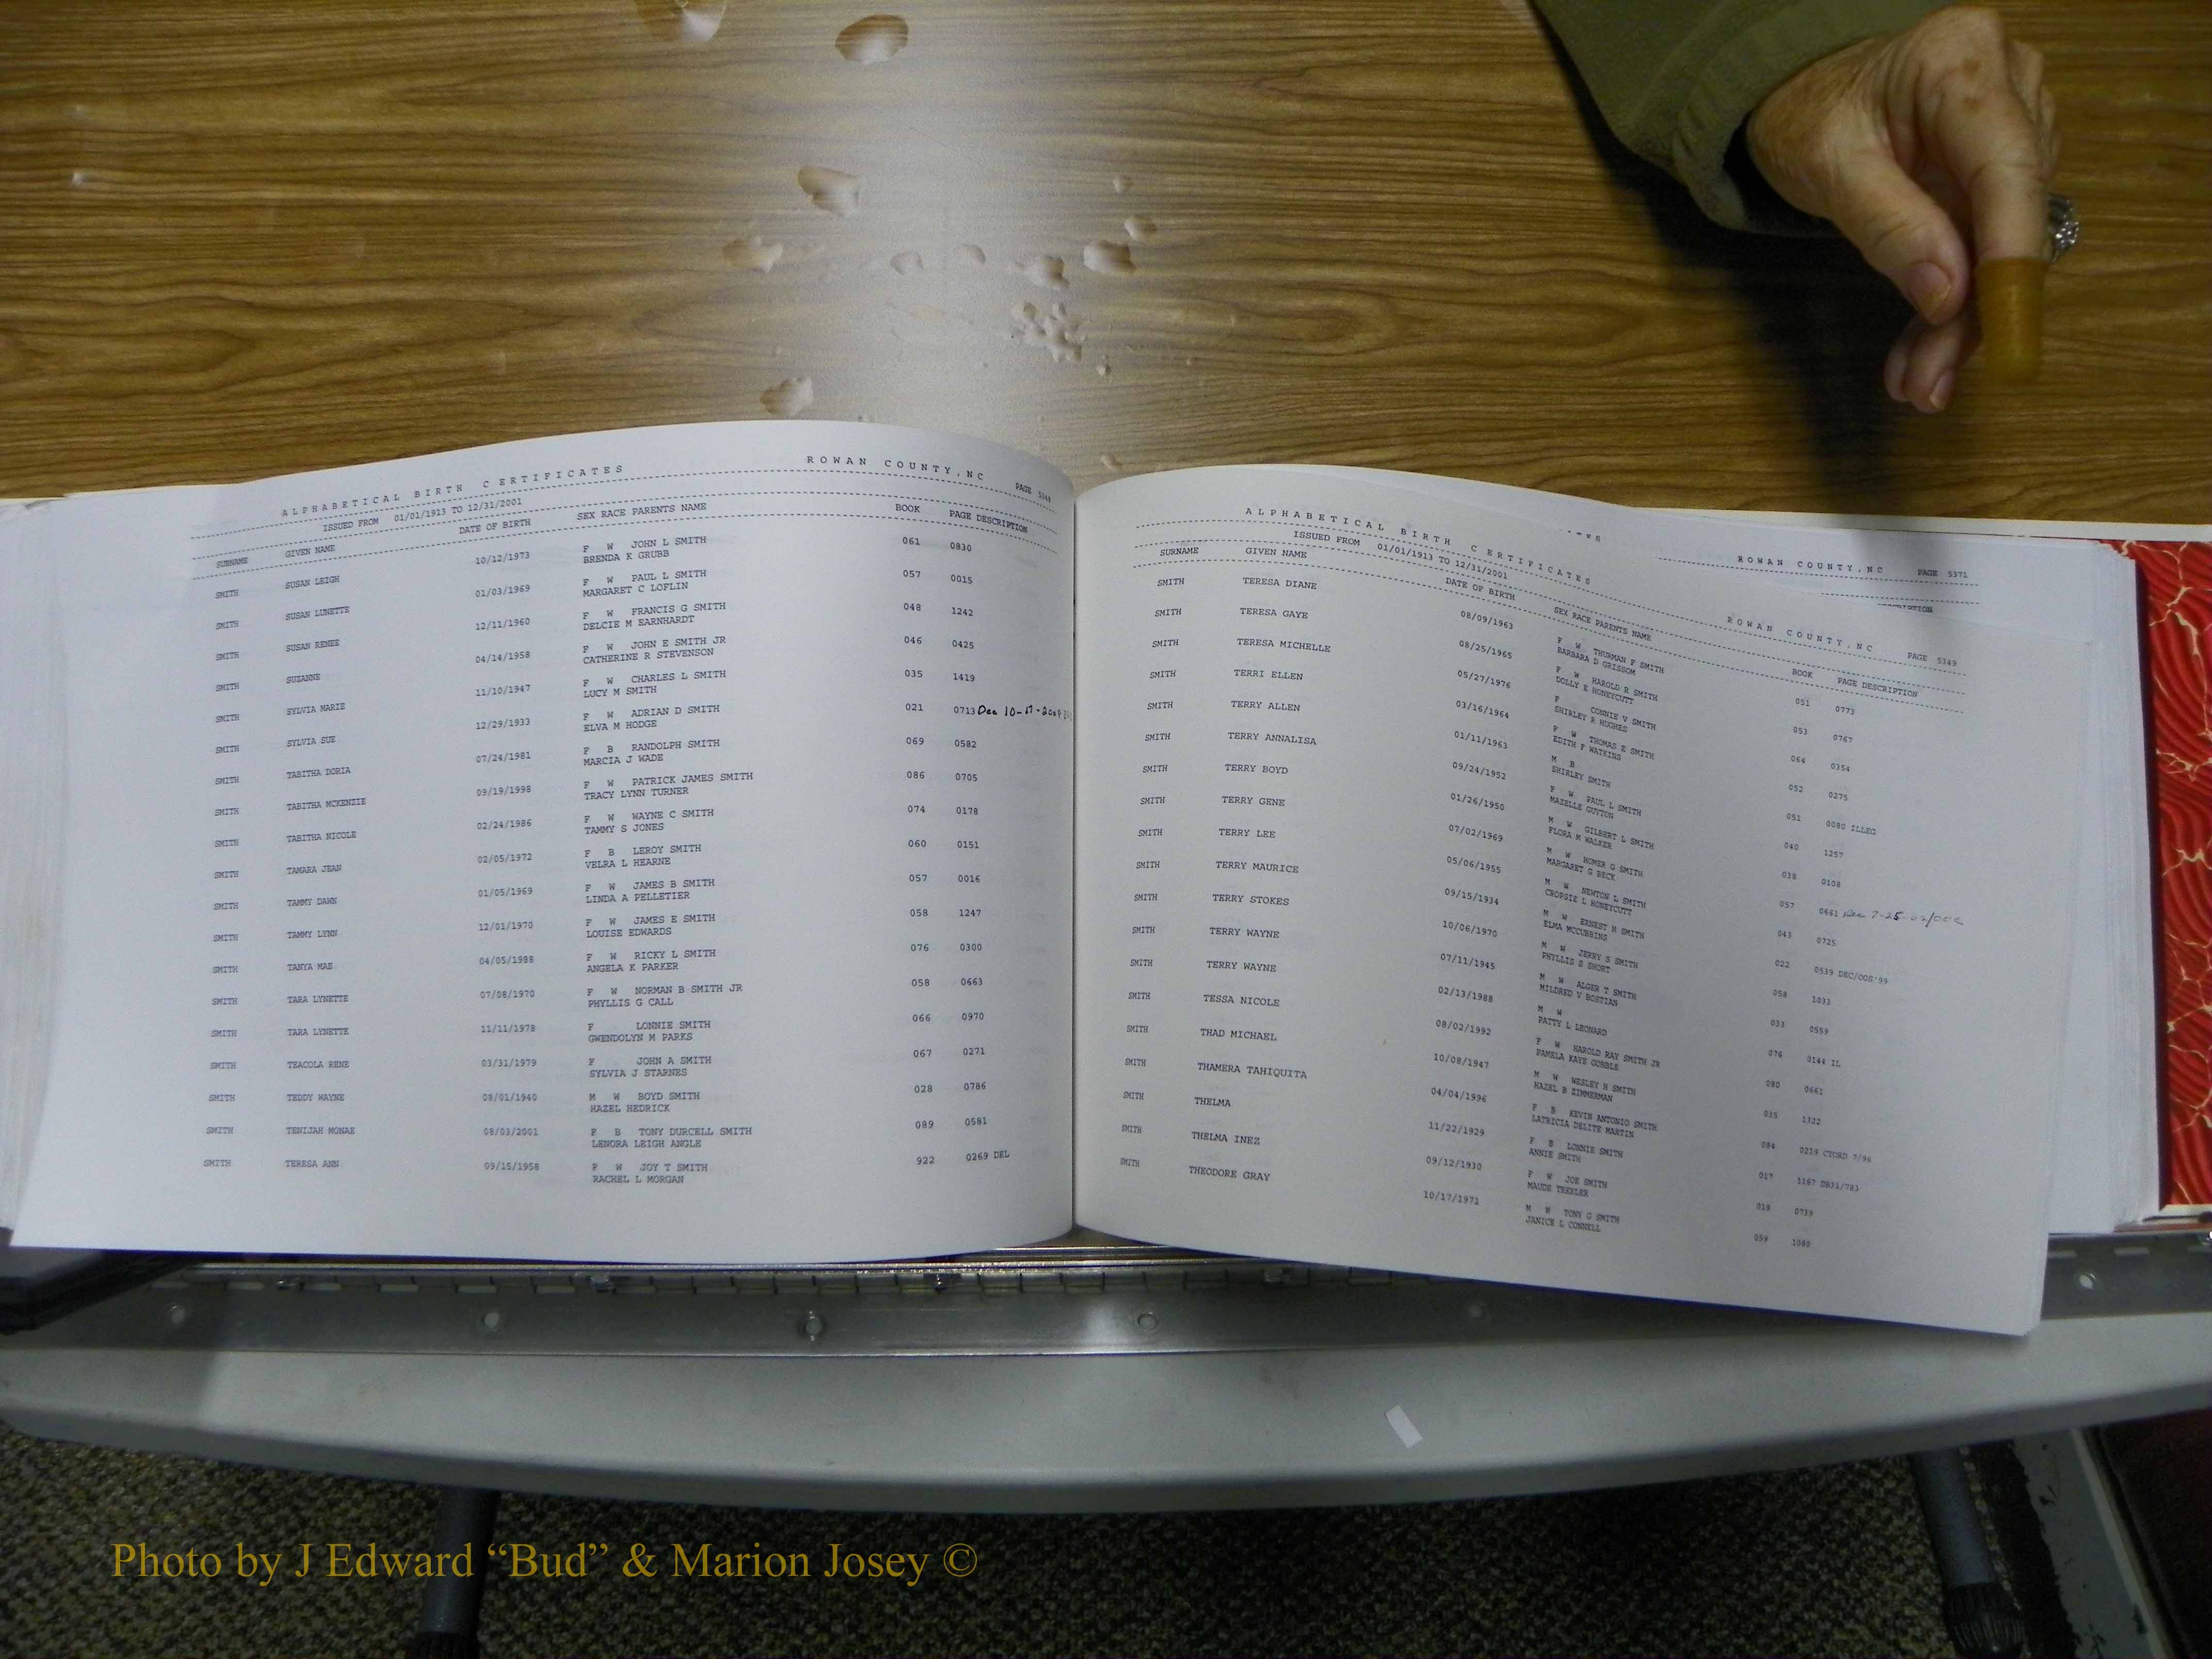 ALPHABETICAL BIRTH CERTIFICATES ROWAN COUNTY,NC PAGE 5348
ISSUED FROM 01/01/1913 TO 12/31/2001
SURNAME GIVEN NAME DATE OF BIRTH SEX RACE PARENTS NAME BOOK PAGE DESCRIPTION
SMITH SUSAN LEIGH 10/12/1973 F W JOHN L SMITH 061 0830
BRENDA K GRUBB
SMITH SUSAN LUNETTE 01/03/1969 F W PAUL L SMITH 057 0015
MARGARET C LOFLIN
SMITH SUSAN RENEE 12/11/1960 F W FRANCIS G SMITH 048 1242
DELCIE M EARNHARDT
SMITH SUZANNE 04/14/1958 F W JOHN E SMITH JR 046 0425
CATHERINE R STEVENSON
SMITH SYLVIA MARIE 11/10/1947 F W CHARLES L SMITH 035 1419
LUCY M SMITH
SMITH SYLVIA SUE 12/29/1933 F W ADRIAN D SMITH 021 0713 Dec 10-17-2009
ELVA M HODGE
SMITH TABITHA DORIA 07/24/1981 F B RANDOLPH SMITH 069 0582
MARCIA J WADE
SMITH TABITHA MCKENZIE 09/19/1998 F W PATRICK JAMES SMITH 086 0705
TRACY LYNN TURNER
SMITH TABITHA NICOLE 02/24/1986 F W WAYNE C SMITH 074 0178
TAMMY S JONES
SMITH TAMARA JEAN 02/05/1972 F B LEROY SMITH 060 0151
VELRA L HEARNE
SMITH TAMMY DAWN 01/05/1969 F W JAMES B SMITH 057 0016
LINDA A PELLETIER
SMITH TAMMY LYNN 12/01/1970 F W JAMES E SMITH 058 1247
LOUISE EDWARDS
SMITH TANYA MAE 04/05/1988 F W RICKY L SMITH 076 0300
ANGELA K PARKER
SMITH TARA LYNETTE 07/08/1970 F W NORMAN B SMITH JR 058 0663
PHYLLIS G CALL
SMITH TARA LYNETTE 11/11/1978 F LONNIE SMITH 066 0970
GWENDOLYN M PARKS
SMITH TEACOLA RENE 03/31/1979 F JOHN A SMITH 067 0271
SYLVIA J STARNES
SMITH TEDDY WAYNE 08/01/1940 M W BOYD SMITH 028 0786
HAZEL HEDRICK
SMITH TENIJAH MONAE 08/03/2001 F B TONY DURCELL SMITH 089 0581
LENORA LEIGH ANGLE
SMITH TERESA ANN 09/15/1958 F W JOY T SMITH 922 0269 DEL
RACHEL L MORGAN
ROWAN COUNTY,NC PAGE 5371
ALPHABETICAL BIRTH CERTIFICATES ROWAN COUNTY,NC PAGE 5349
ISSUED FROM 01/01/1913 TO 12/31/2001
SURNAME GIVEN NAME DATE OF BIRTH SEX RACE PARENTS NAME BOOK PAGE DESCRIPTION
SMITH TERESA DIANE 08/09/1963 F W THURMAN F SMITH 051 0773
BARBARA D GRISSOM
SMITH TERESA GAYE 08/25/1965 F W HAROLD R SMITH 053 0767
DOLLY E HONEYCUTT
SMITH TERESA MICHELLE 05/27/1976 F CONNIE V SMITH 064 0354
SHIRLEY R HUGHES
SMITH TERRI ELLEN 03/16/1964 F W THOMAS E SMITH 052 0275
EDITH F WATKINS
SMITH TERRY ALLEN 01/11/1963 M B 051 0080 ILLEG
SHIRLEY SMITH
SMITH TERRY ANNALISA 09/24/1952 F W PAUL L SMITH 040 1257
MAZELLE GUTTON
SMITH TERRY BOYD 01/26/1950 M W GILBERT L SMITH 038 0108
FLORA M WALKER
SMITH TERRY GENE 07/02/1969 M W HOMER G SMITH 057 0661 Dec 7-25-02/
MARGARET G BECK
SMITH TERRY LEE 05/06/1955 M W NEWTON L SMITH 043 0725
CROPSIE L HONEYCUTT
SMITH TERRY MAURICE 09/15/1934 M W ERNEST H SMITH 022 0539 DEC/COS'99
ELMA MCCUBBINS
SMITH TERRY STOKES 10/06/1970 M W JERRY S SMITH 058 1033
PHYLLIS S SHORT
SMITH TERRY WAYNE 07/11/1945 M W ALGER T SMITH 033 0559
MILDRED V BOSTIAN
SMITH TERRY WAYNE 02/13/1988 M W 076 0144 IL
PATTY L LEONARD
SMITH TESSA NICOLE 08/02/1992 F W HAROLD RAY SMITH JR 080 0661
PAMELA KAYE GOBBLE
SMITH THAD MICHAEL 10/08/1947 M W WESLEY H SMITH 035 1322
HAZEL B ZIMMERMAN
SMITH THAMERA TAHIQUITA 04/04/1996 F B KEVIN ANTONIO SMITH 084 0219 CTORD 7/96
LATRICIA DELITE MARTIN
SMITH THELMA 11/22/1929 F B LONNIE SMITH 017 1187 DB31/783
ANNIE SMITH
SMITH THELMA INEZ 09/12/1930 F W JOE SMITH 018 0739
MAUDE TREXLER
SMITH THEODORE GRAY 10/17/1971 M W TONY G SMITH 059 1080
JANICE L CONNELL
Photo by J Edward “Bud” & Marion Josey ©